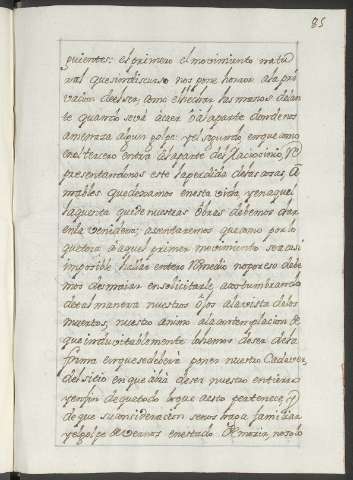 85
guientes: el primero el movimiento natu
ral que sin discurso nos pone horror a la pri
vacion del ser, como el hechar las manos delan
te quando se va à caer ò à la parte donde nos
amenaza algun golpe: y el segundo en que como
en el tercero entra de parte del Raciocinio,
presentandonos este la perdida de las cosas, a
mables que dexamos en esta vida, y en aquel
la quenta que de nuestras obras debemos dar
en la venidera; asentaremos que como por lo
que toca à aquel primer movimiento sera casi
imposible hallar entero Remedio no por eso debe
mos dexar de en solicitarle, acostumbrando
de tal manera nuestros ojos à la vista de los
muertos, nuestro animo a la contemplacion de
que indubitablemente lo hemos de ser de la
forma en que se debera poner nuestro Cadaver,
del sitio en que abrà de ser nuestro entierro
y en fin de que todo lo que a esto pertenece
de que su consideracion se nos haga familiar
y el golpe de vernos en estado de morir, no solo